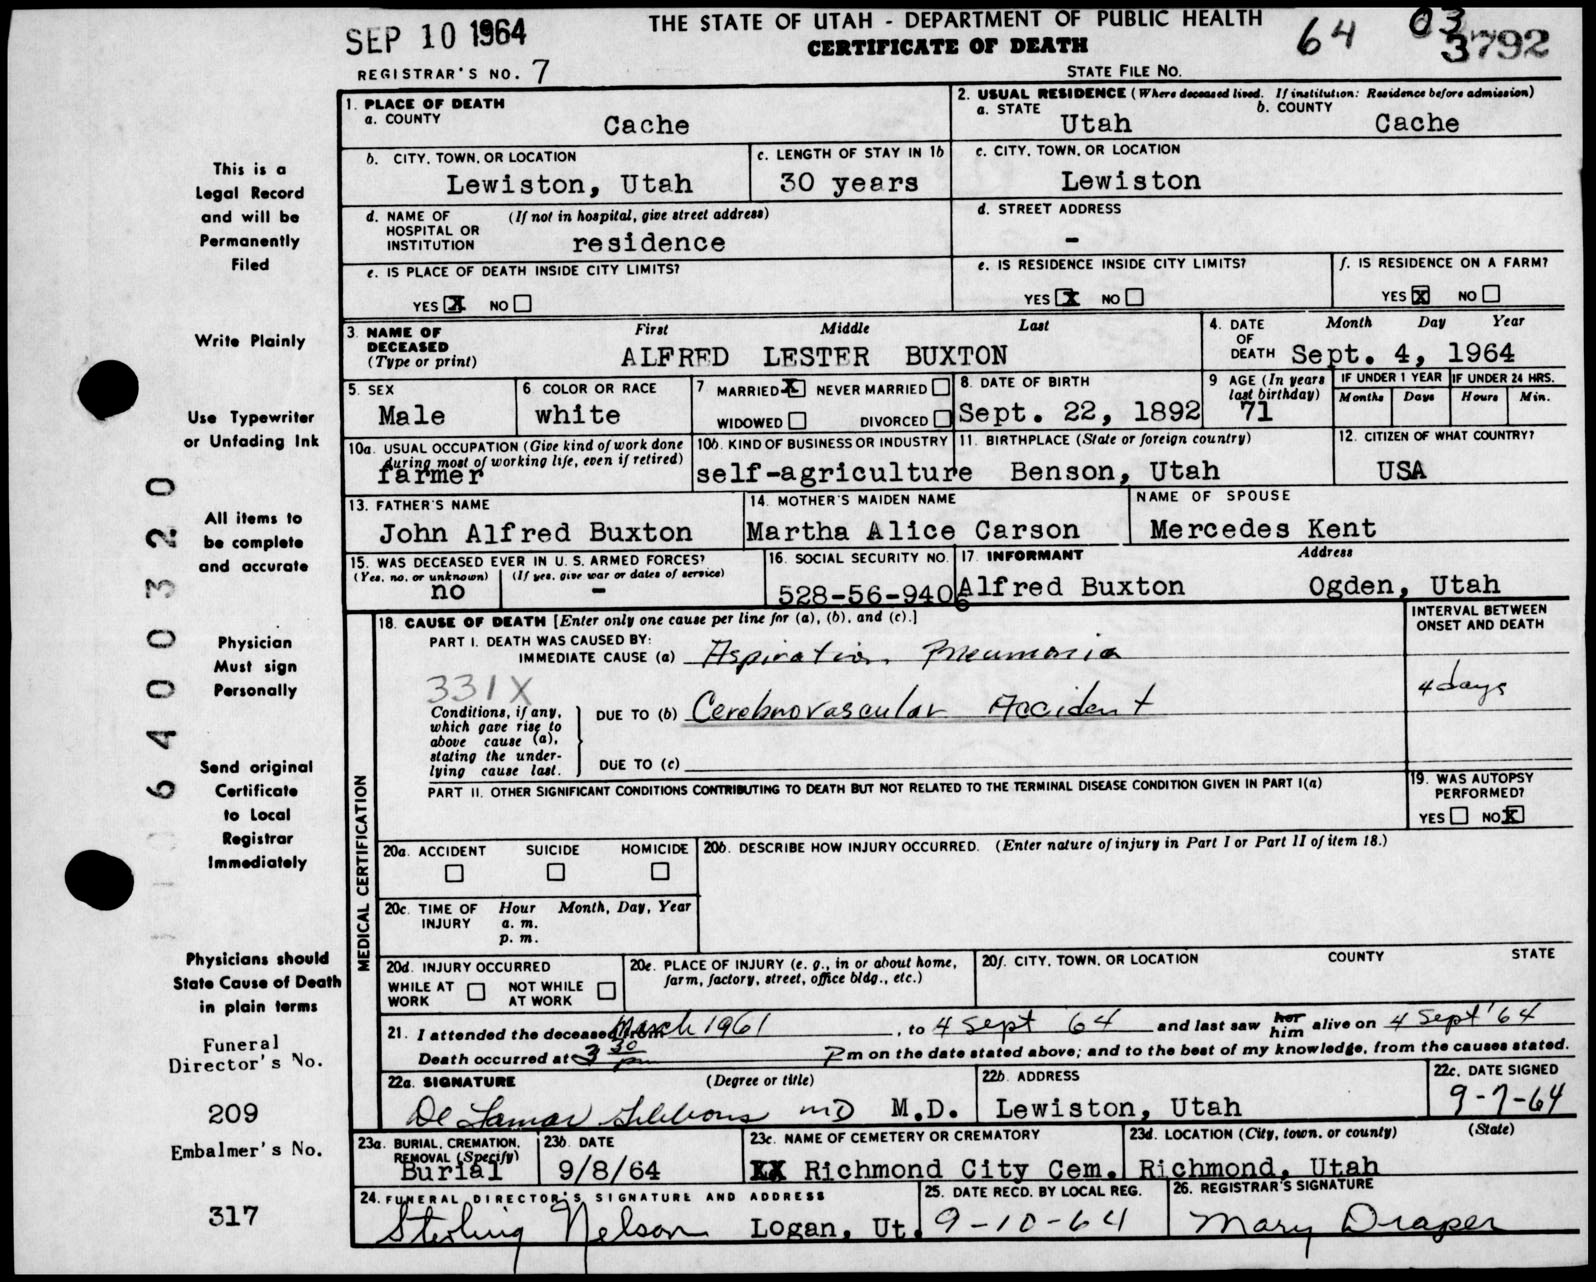 SEP 10 1964
THE STATE OF UTAH - DEPARTMENT OF PUBLIC HEALTH
64 03
3792
CERTIFICATE OF DEATH
REGISTRAR'S NO. 7
STATE FILE NO.
1. PLACE OF DEATH
a. COUNTY
Cache
2. USUAL RESIDENCE (Where deceased lived. If institution: Residence before admission)
a. STATE
Utah
b. COUNTY
Cache
b. CITY, TOWN, OR LOCATION
Lewiston, Utah
c. LENGTH OF STAY IN 1b
30 years
c. CITY, TOWN, OR LOCATION
Lewiston
d. NAME OF HOSPITAL OR INSTITUTION
(If not in hospital, give street address)
residence
d. STREET ADDRESS
-
e. IS PLACE OF DEATH INSIDE CITY LIMITS?
YES X NO
e. IS RESIDENCE INSIDE CITY LIMITS?
YES X NO
f. IS RESIDENCE ON A FARM?
YES X NO
3. NAME OF DECEASED
(Type or print)
First Middle Last
ALFRED LESTER BUXTON
4. DATE OF DEATH
Month Day Year
Sept. 4, 1964
5. SEX
Male
6 COLOR OR RACE
white
7 MARRIED X NEVER MARRIED
WIDOWED DIVORCED
8. DATE OF BIRTH
Sept. 22, 1892
9 AGE (In years last birthday)
71
IF UNDER 1 YEAR
Months Days
IF UNDER 24 HRS.
Hours Min.
10a. USUAL OCCUPATION (Give kind of work done during most of working life, even if retired)
farmer
10b. KIND OF BUSINESS OR INDUSTRY
self-agriculture
11. BIRTHPLACE (State or foreign country)
Benson, Utah
12. CITIZEN OF WHAT COUNTRY?
USA
13. FATHER'S NAME
John Alfred Buxton
14. MOTHER'S MAIDEN NAME
Martha Alice Carson
NAME OF SPOUSE
Mercedes Kent
15. WAS DECEASED EVER IN U. S. ARMED FORCES?
(Yes, no, or unknown) (If yes, give war or dates of service)
no -
16. SOCIAL SECURITY NO.
528-56-9406
17. INFORMANT Address
Alfred Buxton Ogden, Utah
18. CAUSE OF DEATH [Enter only one cause per line for (a), (b), and (c).]
INTERVAL BETWEEN ONSET AND DEATH
PART I. DEATH WAS CAUSED BY:
IMMEDIATE CAUSE (a) Aspiration Pneumonia
331X
4 days
Conditions, if any, which gave rise to above cause (a), stating the underlying cause last.
DUE TO (b) Cerebrovascular Accident
DUE TO (c)
PART II. OTHER SIGNIFICANT CONDITIONS CONTRIBUTING TO DEATH BUT NOT RELATED TO THE TERMINAL DISEASE CONDITION GIVEN IN PART I(a)
19. WAS AUTOPSY PERFORMED?
YES NO X
MEDICAL CERTIFICATION
20a. ACCIDENT SUICIDE HOMICIDE
20b. DESCRIBE HOW INJURY OCCURRED. (Enter nature of injury in Part I or Part II of item 18.)
20c. TIME OF INJURY
Hour Month, Day, Year
a. m.
p. m.
20d. INJURY OCCURRED
WHILE AT WORK NOT WHILE AT WORK
20e. PLACE OF INJURY (e. g., in or about home, farm, factory, street, office bldg., etc.)
20f. CITY, TOWN, OR LOCATION COUNTY STATE
21. I attended the deceased from March 1961, to 4 Sept 64 and last saw her him alive on 4 Sept '64
Death occurred at 3 30 pm Pm on the date stated above; and to the best of my knowledge, from the causes stated.
22a. SIGNATURE (Degree or title)
De Lamar Gibbons MD M.D.
22b. ADDRESS
Lewiston, Utah
22c. DATE SIGNED
9-7-64
23a. BURIAL, CREMATION, REMOVAL (Specify)
Burial
23b. DATE
9/8/64
23c. NAME OF CEMETERY OR CREMATORY
XX Richmond City Cem.
23d. LOCATION (City, town, or county) (State)
Richmond, Utah
24. FUNERAL DIRECTOR'S SIGNATURE AND ADDRESS
Sterling Nelson Logan, Ut.
25. DATE RECD. BY LOCAL REG.
9-10-64
26. REGISTRAR'S SIGNATURE
Mary Draper
This is a
Legal Record
and will be
Permanently
Filed
Write Plainly
Use Typewriter
or Unfading Ink
All items to
be complete
and accurate
Physician
Must sign
Personally
Send original
Certificate
to Local
Registrar
Immediately
Physicians should
State Cause of Death
in plain terms
Funeral
Director's No.
209
Embalmer's No.
317
6400320